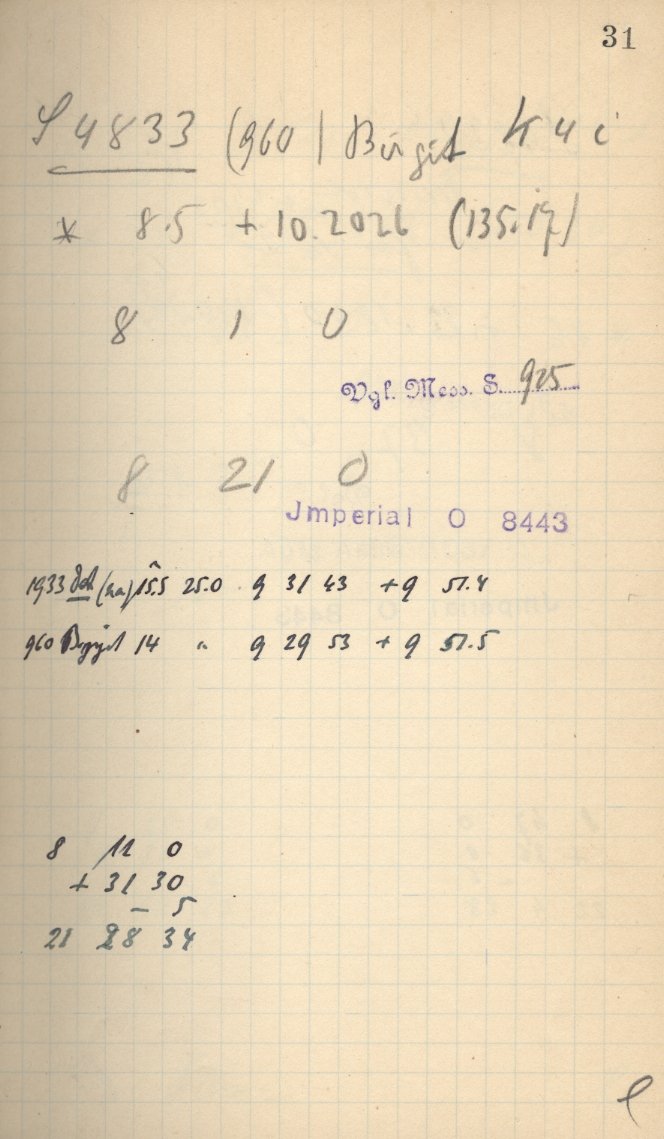 31
4833 (960) Birgit
* 8.5 + 10.2026
8 1 0
Vgl. Mess. S. 925
8 21 0
Jmperial O 8443
1933 15.5 25.0 9 31 43 + 9 51.4
960 Birgit 14 " 9 29 53 + 9 51.5
8 11 0
+ 31 30
– 5
21 28 34